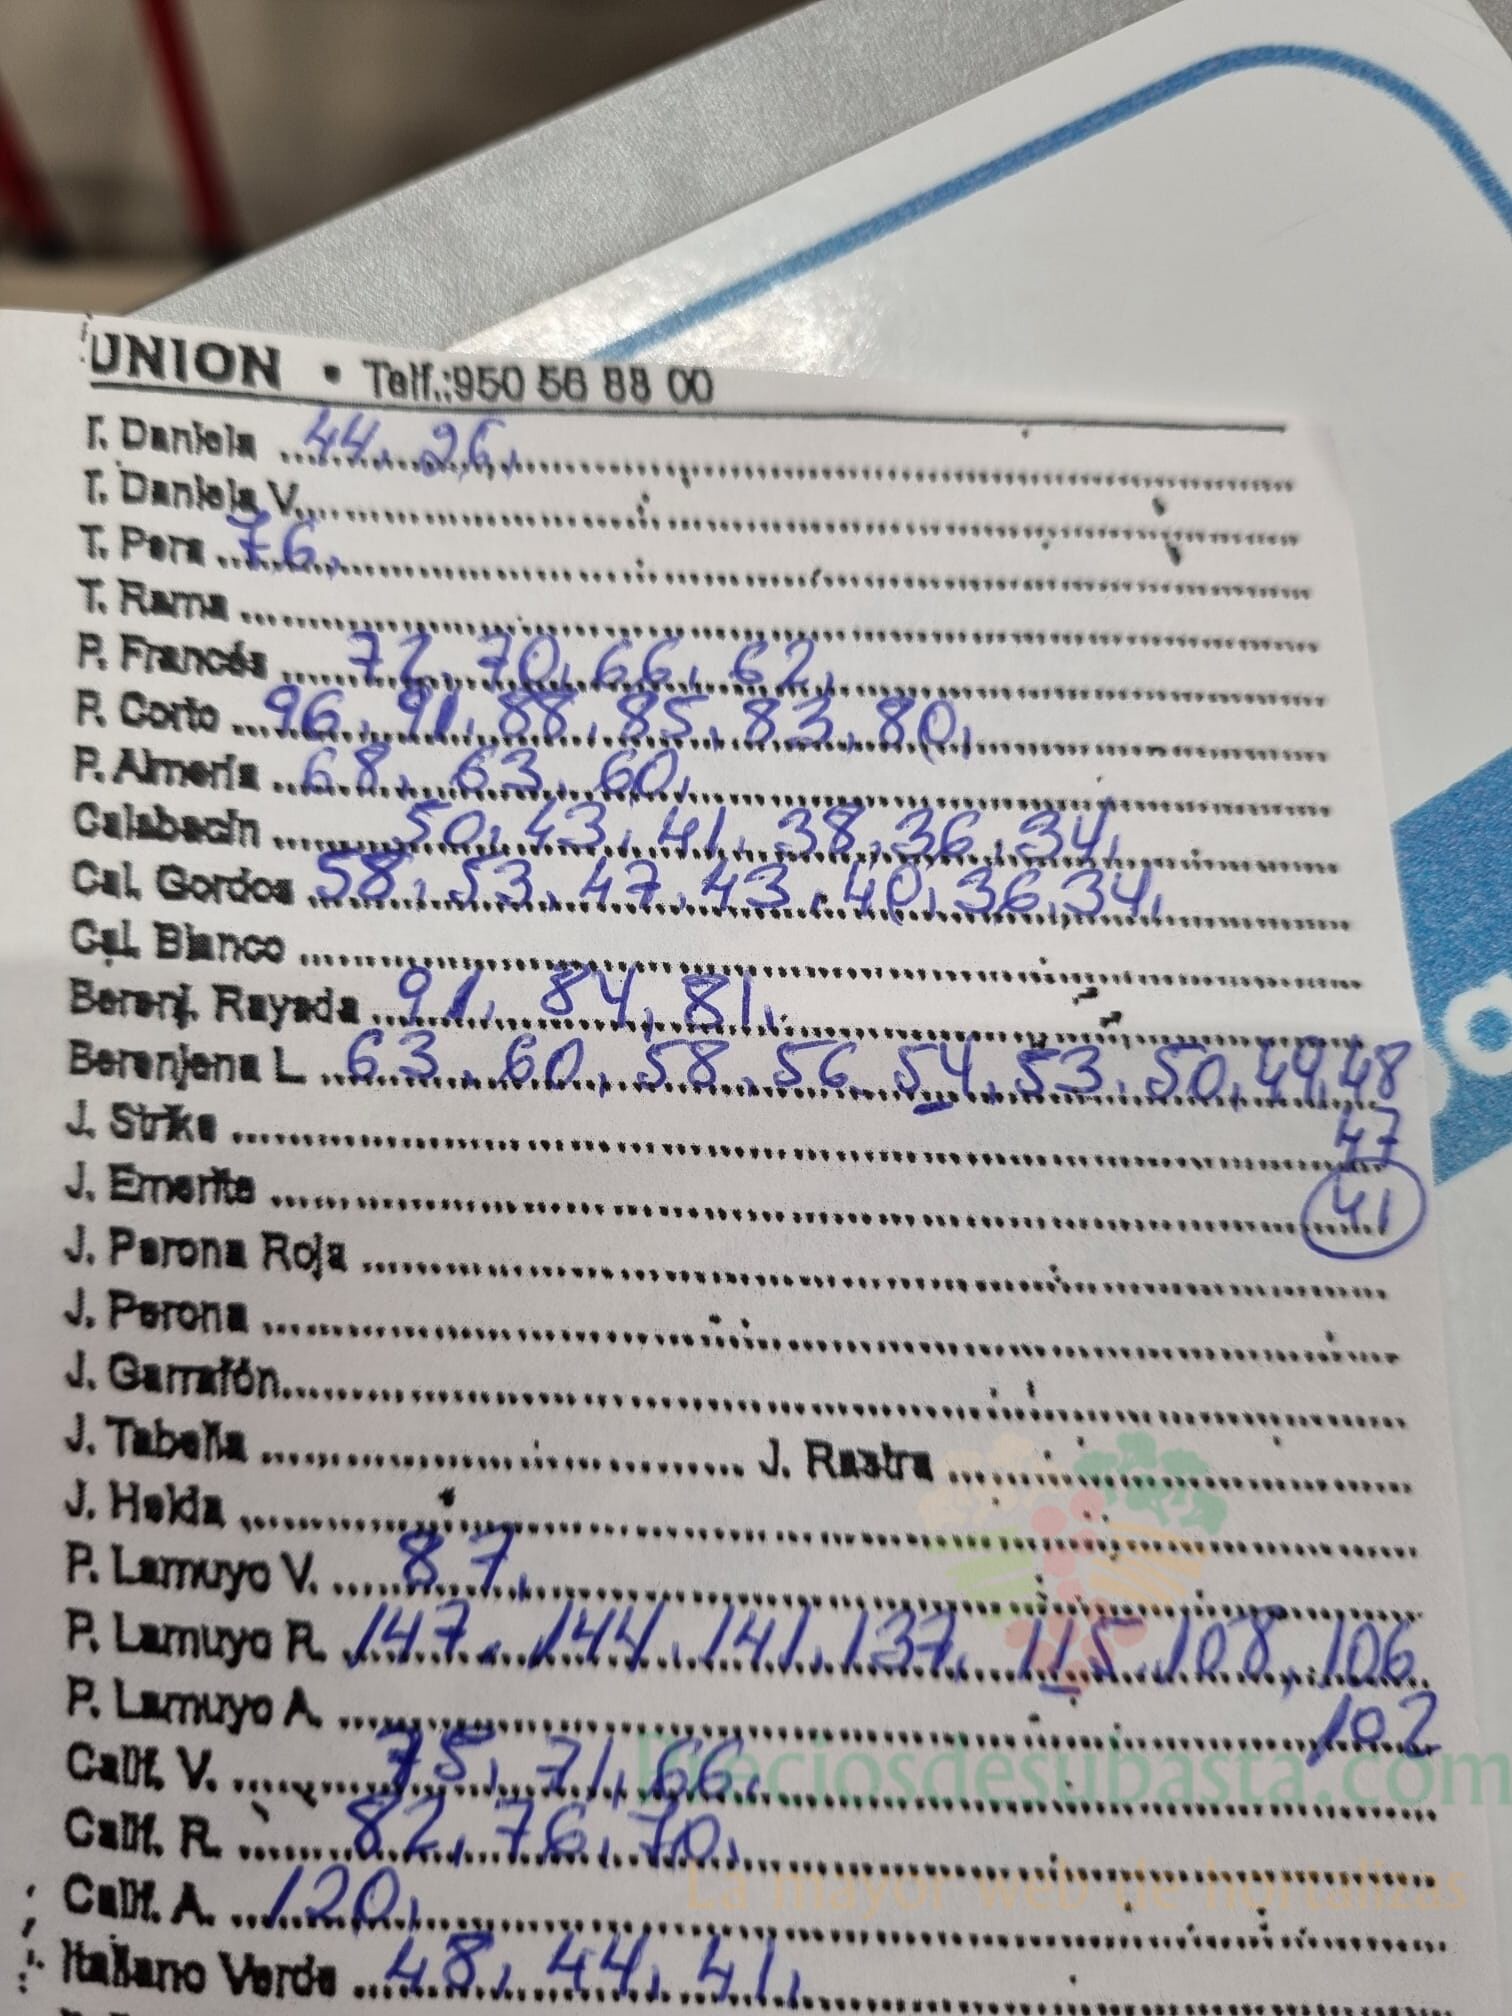 UNION • Telf.:950 56 88 00
T. Daniela ... 44, 26,
T. Daniela V. ...
T. Pera ... 76,
T. Rama ...
P. Francés ... 72, 70, 66, 62,
P. Corto ... 96, 91, 88, 85, 83, 80,
P. Almería ... 68, 63, 60,
Calabacín ... 50, 43, 41, 38, 36, 34,
Cal. Gordos ... 58, 53, 47, 43, 40, 36, 34,
Cal. Blanco ...
Berenj. Rayada ... 91, 84, 81,
Berenjena L. ... 63, 60, 58, 56, 54, 53, 50, 49, 48
J. Strike ... 47
J. Emerite ... 41
J. Perona Roja ...
J. Perona ...
J. Garrafón...
J. Tabella ... J. Rastra ...
J. Helda ...
P. Lamuyo V. ... 87,
P. Lamuyo R. ... 147, 144, 141, 137, 115, 108, 106
P. Lamuyo A. ... 102
Calif. V. ... 75, 71, 66,
Calif. R. ... 82, 76, 70,
Calif. A. ... 120,
Italiano Verde ... 48, 44, 41,
Preciosdesubasta.com
La mayor web de hortalizas